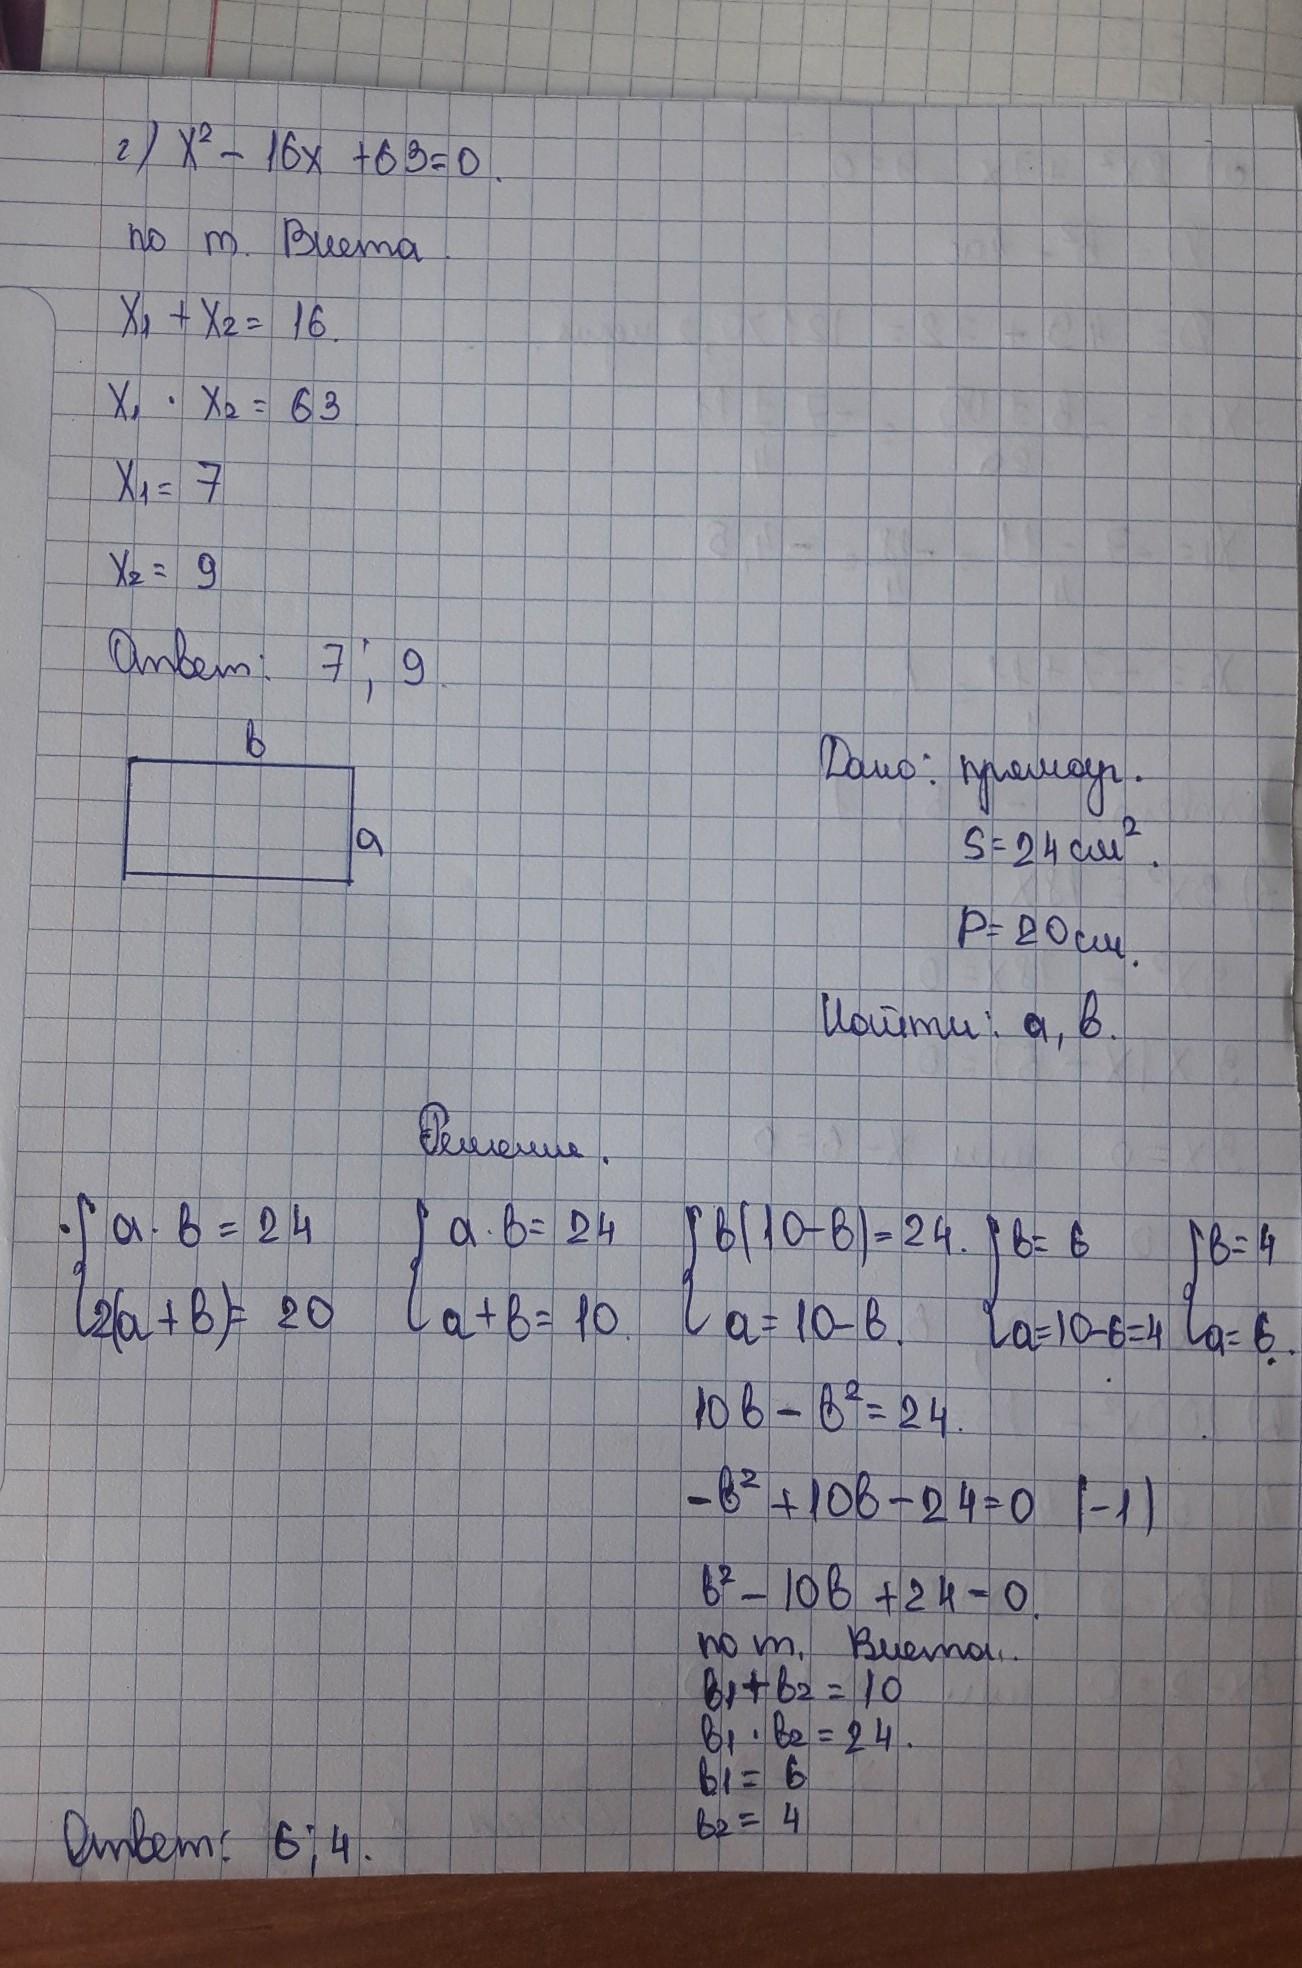 г) x² - 16x + 63 = 0.
по т. Виета.
x₁ + x₂ = 16.
x₁ · x₂ = 63
x₁ = 7
x₂ = 9
Ответ: 7; 9.
в
а
Дано: прямоуг.
S = 24 см².
P = 20 см.
Найти: а, в.
Решение.
{ а · в = 24 { а · в = 24 { в(10-в) = 24. { в = 6 { в = 4
2(а + в) = 20 а + в = 10. а = 10 - в. а = 10-6=4 а = 6.
10в - в² = 24.
-в² + 10в - 24 = 0 (-1)
в² - 10в + 24 = 0.
по т. Виета.
в₁ + в₂ = 10
в₁ · в₂ = 24.
в₁ = 6
в₂ = 4
Ответ: 6; 4.